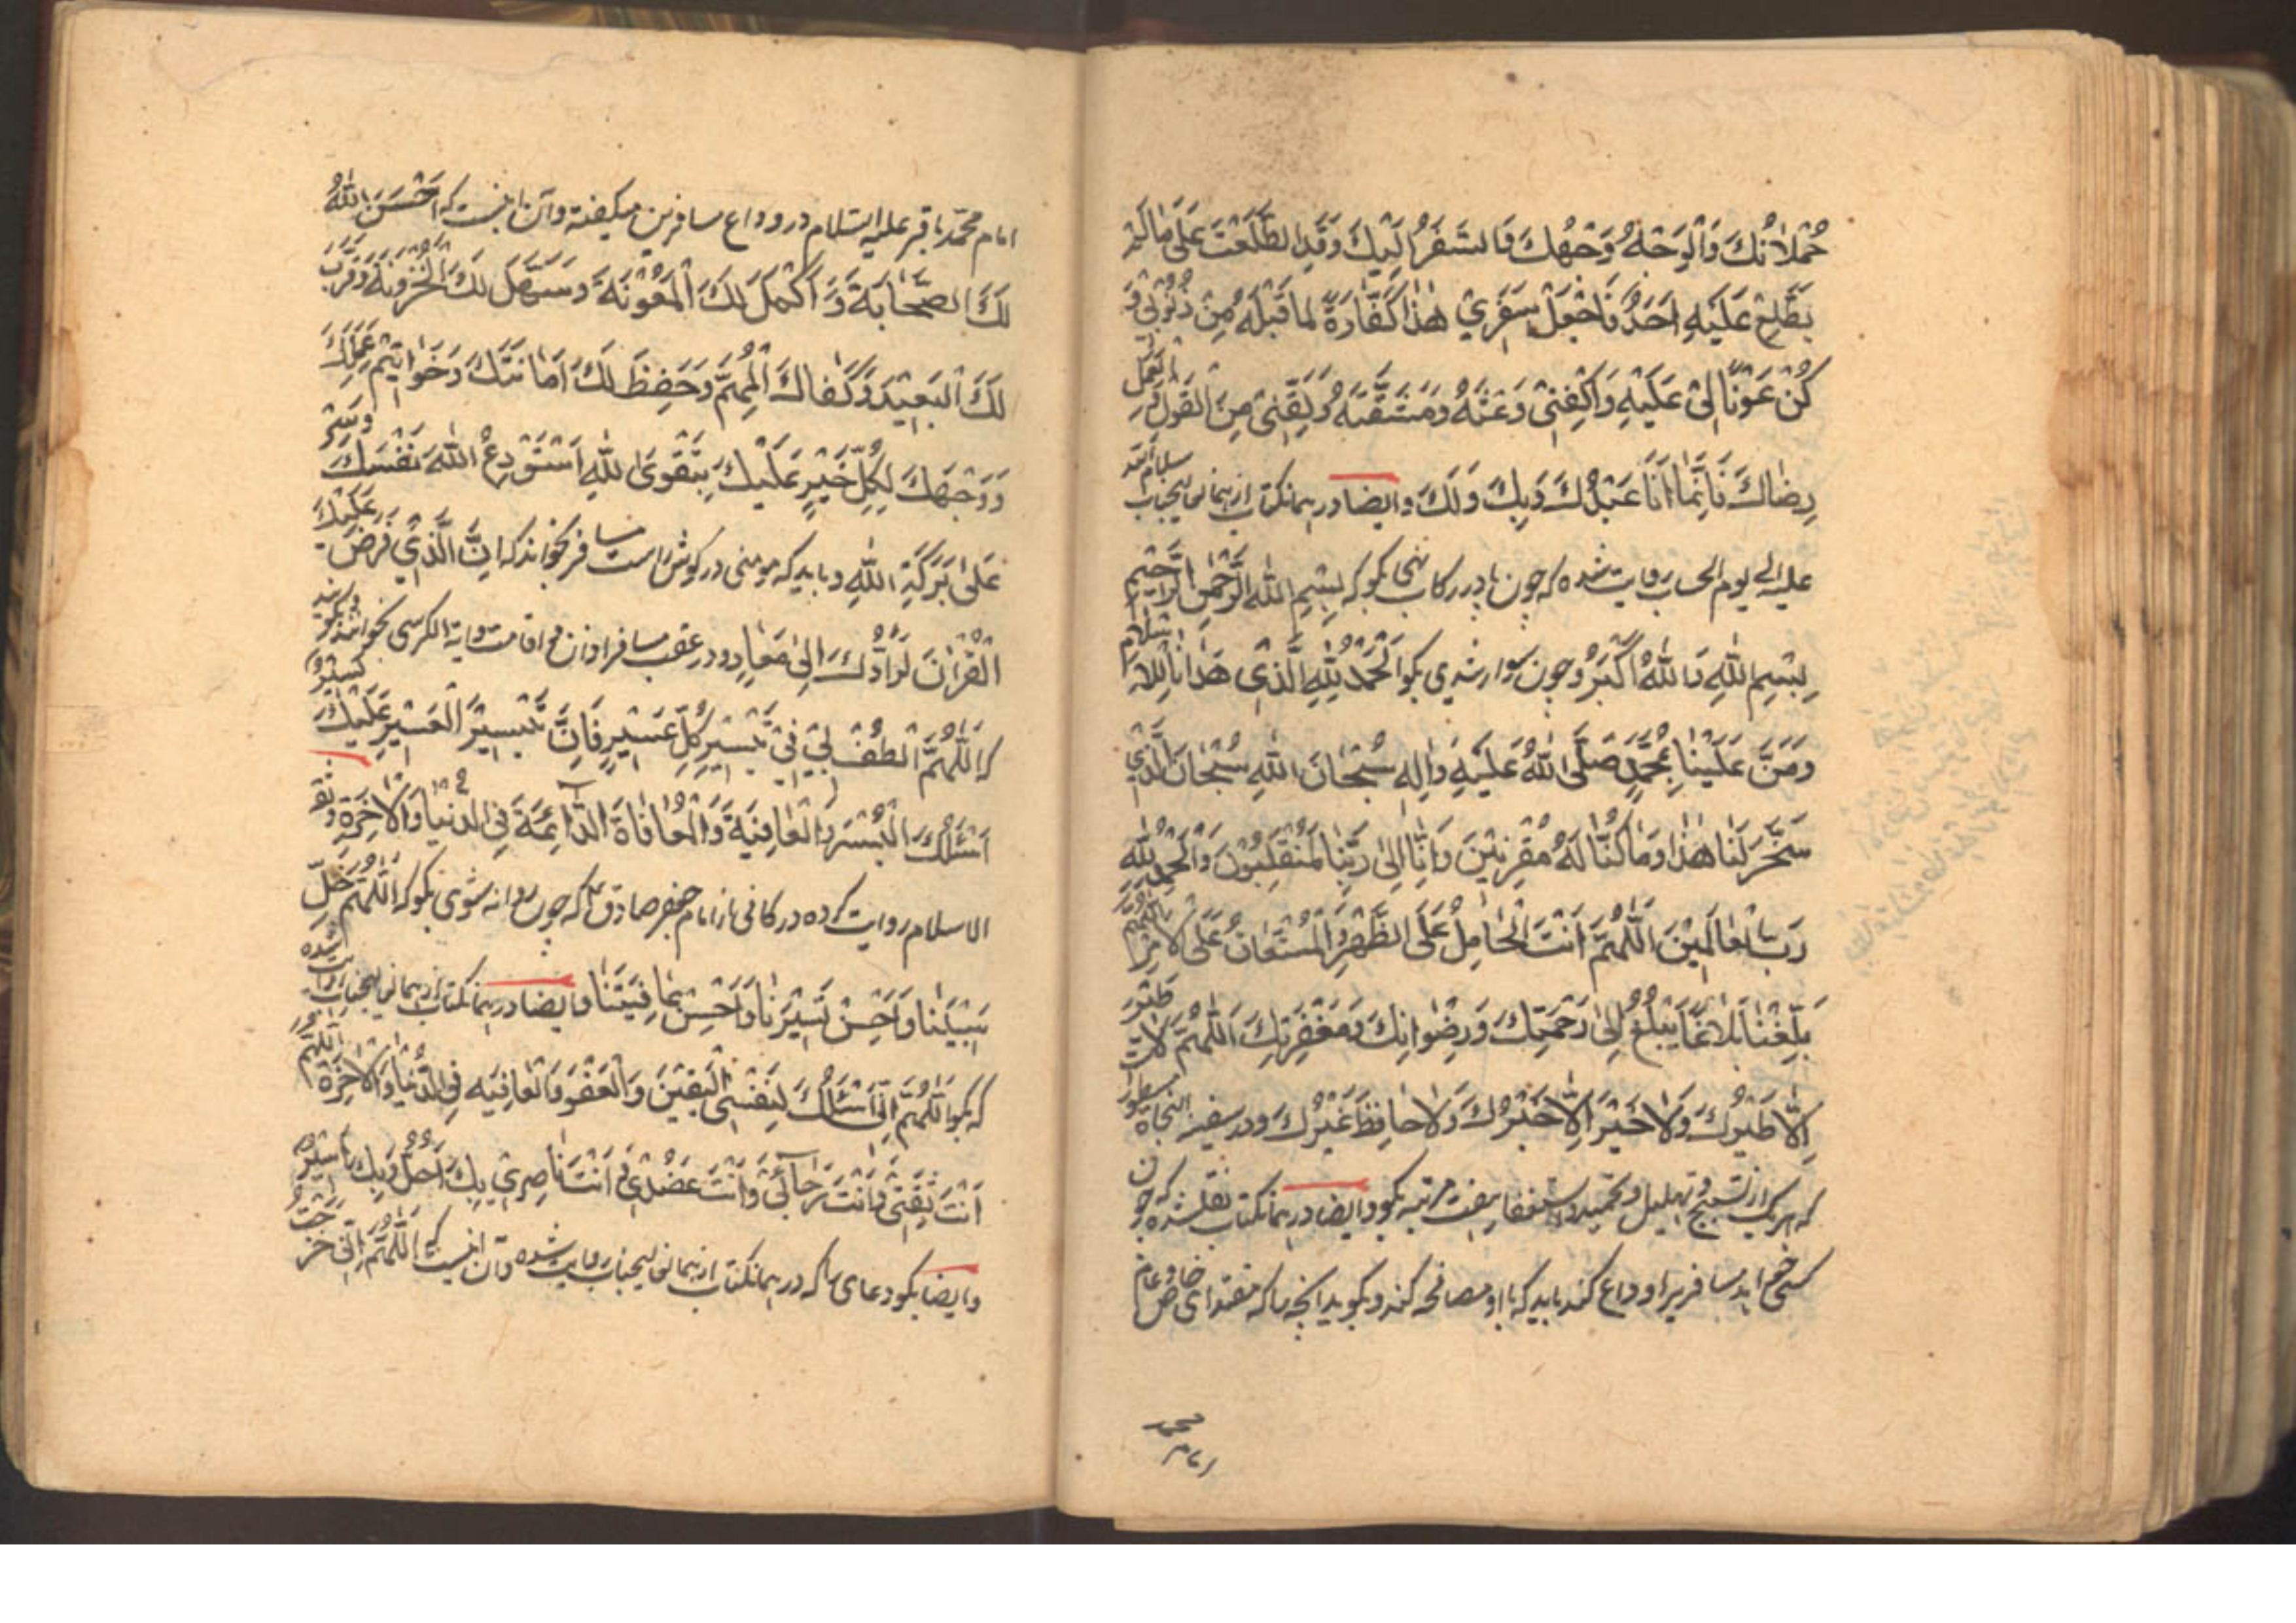 حُمْلانُكَ وَالْوَجْهُ وَجْهُكَ وَالسَّفَرُ اِلَيْكَ وَقَدِ اطَّلَعْتَ عَلَى مَا لَمْ
يَطَّلِعْ عَلَيْهِ اَحَدٌ فَاجْعَلْ سَفَرِي هٰذَا كَفَّارَةً لِمَا قَبْلَهُ مِنْ ذُنُوبِي وَ
كُنْ عَوْنًا لِي عَلَيْهِ وَاكْفِنِي وَعْثَهُ وَمَشَقَّتَهُ وَلَقِّنِي مِنَ الْقَوْلِ وَالْعَمَلِ
رِضَاكَ فَاِنَّمَا اَنَا عَبْدُكَ وَبِكَ وَلَكَ وايضا در همانكتاب از همانعاليجناب سلام الله
عليه الى يوم الحساب روايت شده كه چون پا در ركاب نهى بگو كه بِسْمِ اللهِ الرَّحْمٰنِ الرَّحِيمِ
بِسْمِ اللهِ وَاللهُ اَكْبَرُ وچون سوار شدى بگو اَلْحَمْدُ لِلّٰهِ الَّذِي هَدَانَا لِلاِسْلَامِ
وَمَنَّ عَلَيْنَا بِمُحَمَّدٍ صَلَّى اللهُ عَلَيْهِ وَاٰلِهِ سُبْحَانَ اللهِ سُبْحَانَ الَّذِي
سَخَّرَ لَنَا هٰذَا وَمَا كُنَّا لَهُ مُقْرِنِينَ وَاِنَّا اِلٰى رَبِّنَا لَمُنْقَلِبُونَ وَالْحَمْدُ لِلّٰهِ
رَبِّ الْعَالَمِينَ اَللّٰهُمَّ اَنْتَ الْحَامِلُ عَلَى الظَّهْرِ وَالْمُسْتَعَانُ عَلَى الْاَمْرِ اَللّٰهُمَّ
بَلِّغْنَا بَلَاغًا يَبْلُغُ اِلٰى رَحْمَتِكَ وَرِضْوَانِكَ وَمَغْفِرَتِكَ اَللّٰهُمَّ لَا طَيْرَ
اِلَّا طَيْرُكَ وَلَا خَيْرَ اِلَّا خَيْرُكَ وَلَا حَافِظَ غَيْرُكَ ودر سفينة النجاة مسطور
كه هر يك از تسبيح وتهليل وتحميد واستغفار هفت مرتبه بگو وايضا در همانكتاب نقلشده كه چون
كسى خواهد مسافريرا وداع كند بايد كه با او مصافحه كند وبگويد انچه را كه مقتداى خاص وعام
امام محمد
امام محمّد باقر عليه السّلام در وداع مسافرين ميگفته وآن اينست كه اَحْسَنَ اللهُ
لَكَ الصَّحَابَةَ وَ اَكْمَلَ لَكَ الْمَعُونَةَ وَسَهَّلَ لَكَ الْحُزُونَةَ وَقَرَّبَ
لَكَ الْبَعِيدَ وَكَفَاكَ الْمُهِمَّ وَحَفِظَ لَكَ اَمَانَتَكَ وَخَوَاتِيمَ عَمَلِكَ
وَوَجَّهَكَ لِكُلِّ خَيْرٍ عَلَيْكَ بِتَقْوَى اللهِ اَسْتَوْدِعُ اللهَ نَفْسَكَ وَسِرْ
عَلٰى بَرَكَةِ اللهِ وبايد كه مومنى در گوش راست مسافر بخواند كه اِنَّ الَّذِي فَرَضَ عَلَيْكَ
الْقُرْاٰنَ لَرَادُّكَ اِلٰى مَعَادٍ ودر عقب مسافر اذان و اقامت وآية الكرسى بخوانند وبگويند
كه اَللّٰهُمَّ الْطُفْ لِي فِي تَيْسِيرِ كُلِّ عَسِيرٍ فَاِنَّ تَيْسِيرَ الْعَسِيرِ عَلَيْكَ يَسِيرٌ
اَسْئَلُكَ الْيُسْرَ وَالْعَافِيَةَ وَالْمُعَافَاةَ الدَّائِمَةَ فِي الدُّنْيَا وَالْاٰخِرَةِ وثقة
الاسلام روايت كرده در كافى از امام جعفر صادق ع كه چون روانه شوى بگو كه اَللّٰهُمَّ خَلِّ
سَبِيلَنَا وَاَحْسِنْ تَسْيِيرَنَا وَاَحْسِنْ عَافِيَتَنَا وايضا در همانكتاب از همانعاليجناب روايت شده
كه بگو اَللّٰهُمَّ اِنِّي اَسْئَلُكَ لِنَفْسِي الْيَقِينَ وَالْعَفْوَ وَالْعَافِيَةَ فِي الدُّنْيَا وَالْاٰخِرَةِ اَللّٰهُمَّ
اَنْتَ ثِقَتِي وَاَنْتَ رَجَائِي وَاَنْتَ عَضُدِي وَاَنْتَ نَاصِرِي بِكَ اَحُلُّ وَبِكَ اَسِيرُ
وايضا بگو دعاى را كه در همانكتاب از همانعاليجناب روايت شده وآن اينست كه اَللّٰهُمَّ اِنِّي خَرَجْتُ